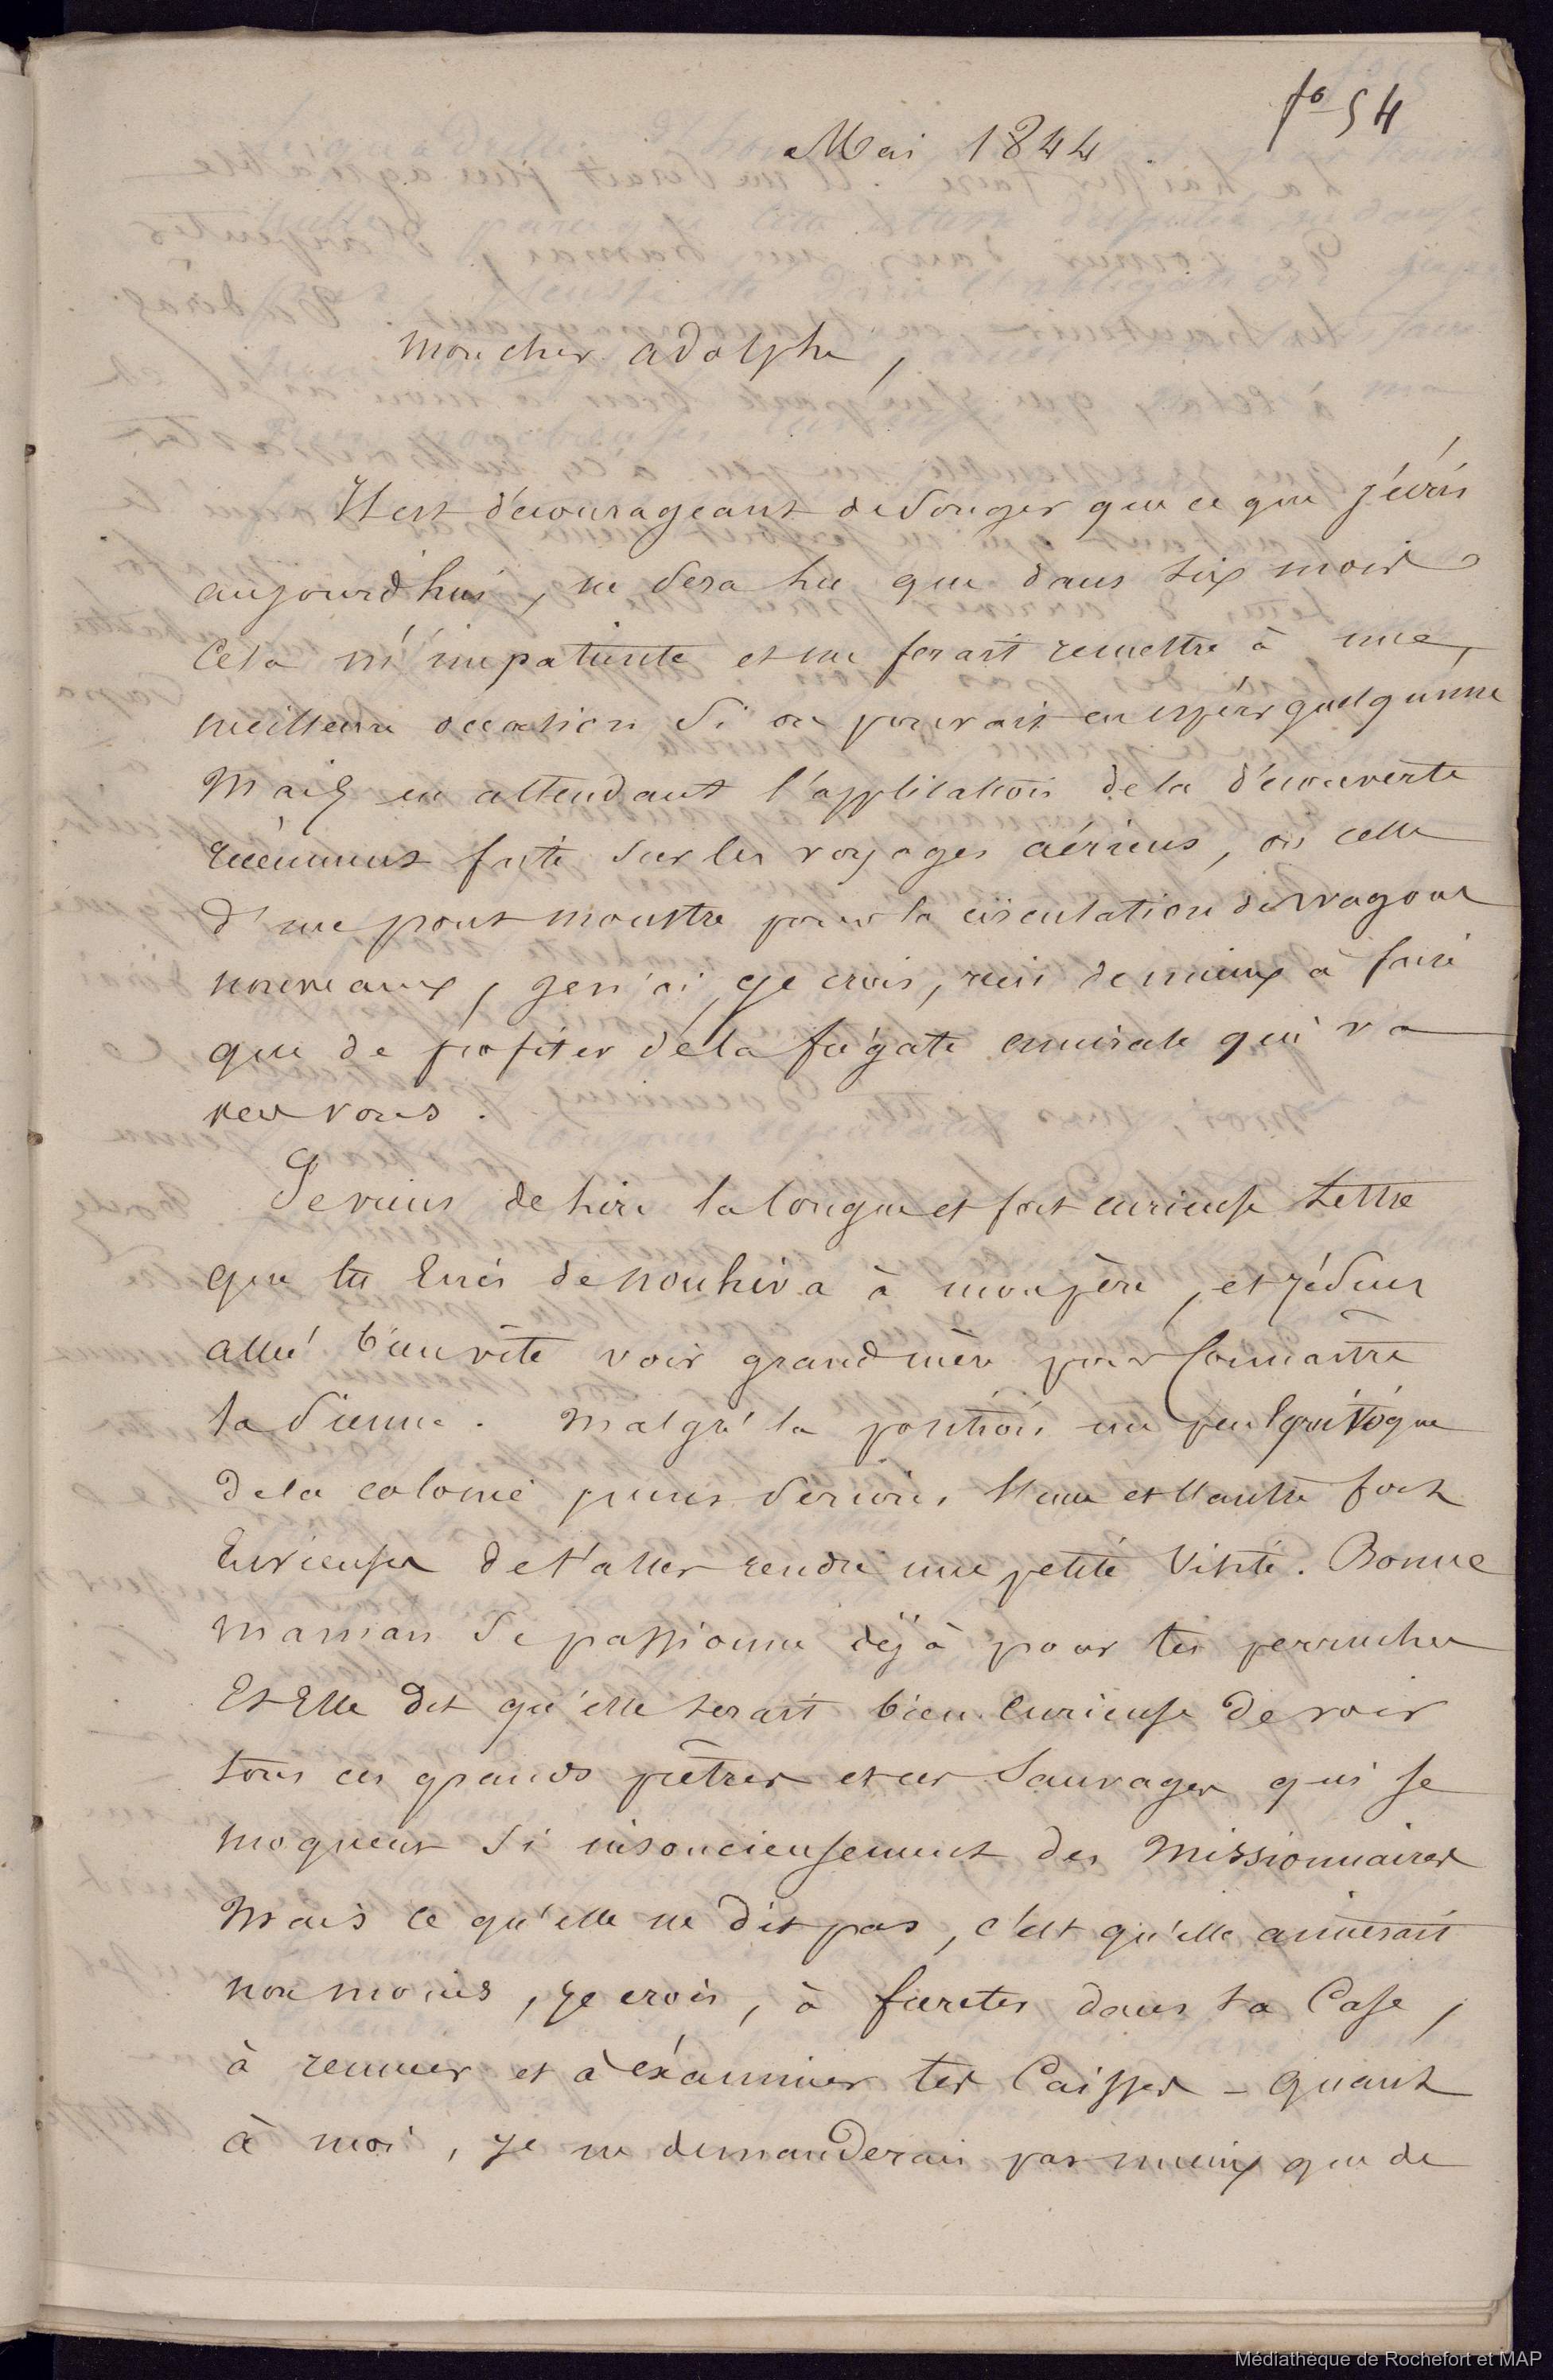 fo 54
Mai 1844.
Mon cher Adolphe,
Il est décourageant de songer que ce que j'écris
aujourd'hui, ne sera lu que dans six mois
Cela m'impatiente et me ferait remettre à une
meilleure occasion si on pouvait en espérer quelqu'une
Mais en attendant l'application de la découverte
récemment faite sur les voyages aériens, ou celle
d'un pont monstre pour la circulation de wagons
nouveaux, je n'ai, je crois, rien de mieux à faire
que de profiter de la frégate amirale qui va
vers vous.
Je viens de lire la longue et fort curieuse lettre
que tu écris de nouhiva à mon père, et je suis
allée bien vite voir grand mère pour connaître
la sienne. Malgré la position un peu
de la colonie nous serions, l'une et l'autre fort
curieuses de t'aller rendre une petite visite. Bonne
maman se passionne déjà pour tes perruches
Et Elle dit qu'elle serait bien curieuse de voir
tous ces grands prêtres et ces Sauvages qui se
moquent si insoucieusement des Missionnaires
Mais ce qu'elle ne dit pas, c'est qu'elle aimerait
non moins, je crois, à fureter dans ta Case,
à remuer et à éxaminer tes Caisses - Quant
à moi, je ne demanderais pas mieux que de
Médiathèque de Rochefort et MAP